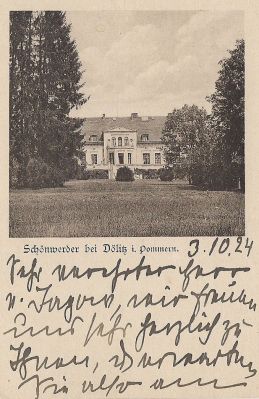 Schönwerder bei Dölitz i. Pommern.
3.10.24
Sehr verehrter Herr
v. Jagow, wir freuen
uns sehr herzlich zu
Ihnen, u. erwarten
Sie also am